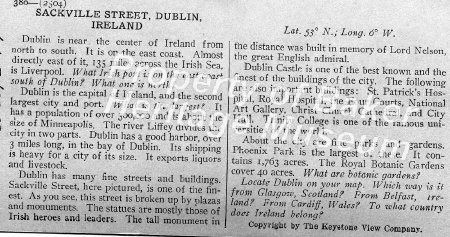 380—(2504)
SACKVILLE STREET, DUBLIN,
IRELAND
Dublin is near the center of Ireland from
north to south. It is on the east coast. Almost
directly east of it, 135 miles across the Irish Sea,
is Liverpool. What Irish port is on the coast
south of Dublin? What one is north?
Dublin is the capital of Ireland, and the second
largest city and port. What is the largest? It
has a population of over 300,000 and is about the
size of Minneapolis. The river Liffey divides the
city in two parts. Dublin has a good harbor, over
3 miles long, in the bay of Dublin. Its shipping
is heavy for a city of its size. It exports liquors
and livestock.
Dublin has many fine streets and buildings.
Sackville Street, here pictured, is one of the fin-
est. As you see, this street is broken up by plazas
and monuments. The statues are mostly those of
Irish heroes and leaders. The tall monument in
Lat. 53° N.; Long. 6° W.
the distance was built in memory of Lord Nelson,
the great English admiral.
Dublin Castle is one of the best known and the
finest of the buildings of the city. The following
are also important buildings: St. Patrick's Hos-
pital, Royal Hospital, the Four Courts, National
Art Gallery, Christ Church, and City
Hall. Trinity College is one of the famous uni-
versities of the world.
About the city are fine parks and gardens.
Phoenix Park is the largest of these. It con-
tains 1,763 acres. The Royal Botanic Gardens
cover 40 acres. What are botanic gardens?
Locate Dublin on your map. Which way is it
from Glasgow, Scotland? From Belfast, Ire-
land? From Cardiff, Wales? To what country
does Ireland belong?
Copyright by The Keystone View Company.
Property of Quaker
Heritage Museum